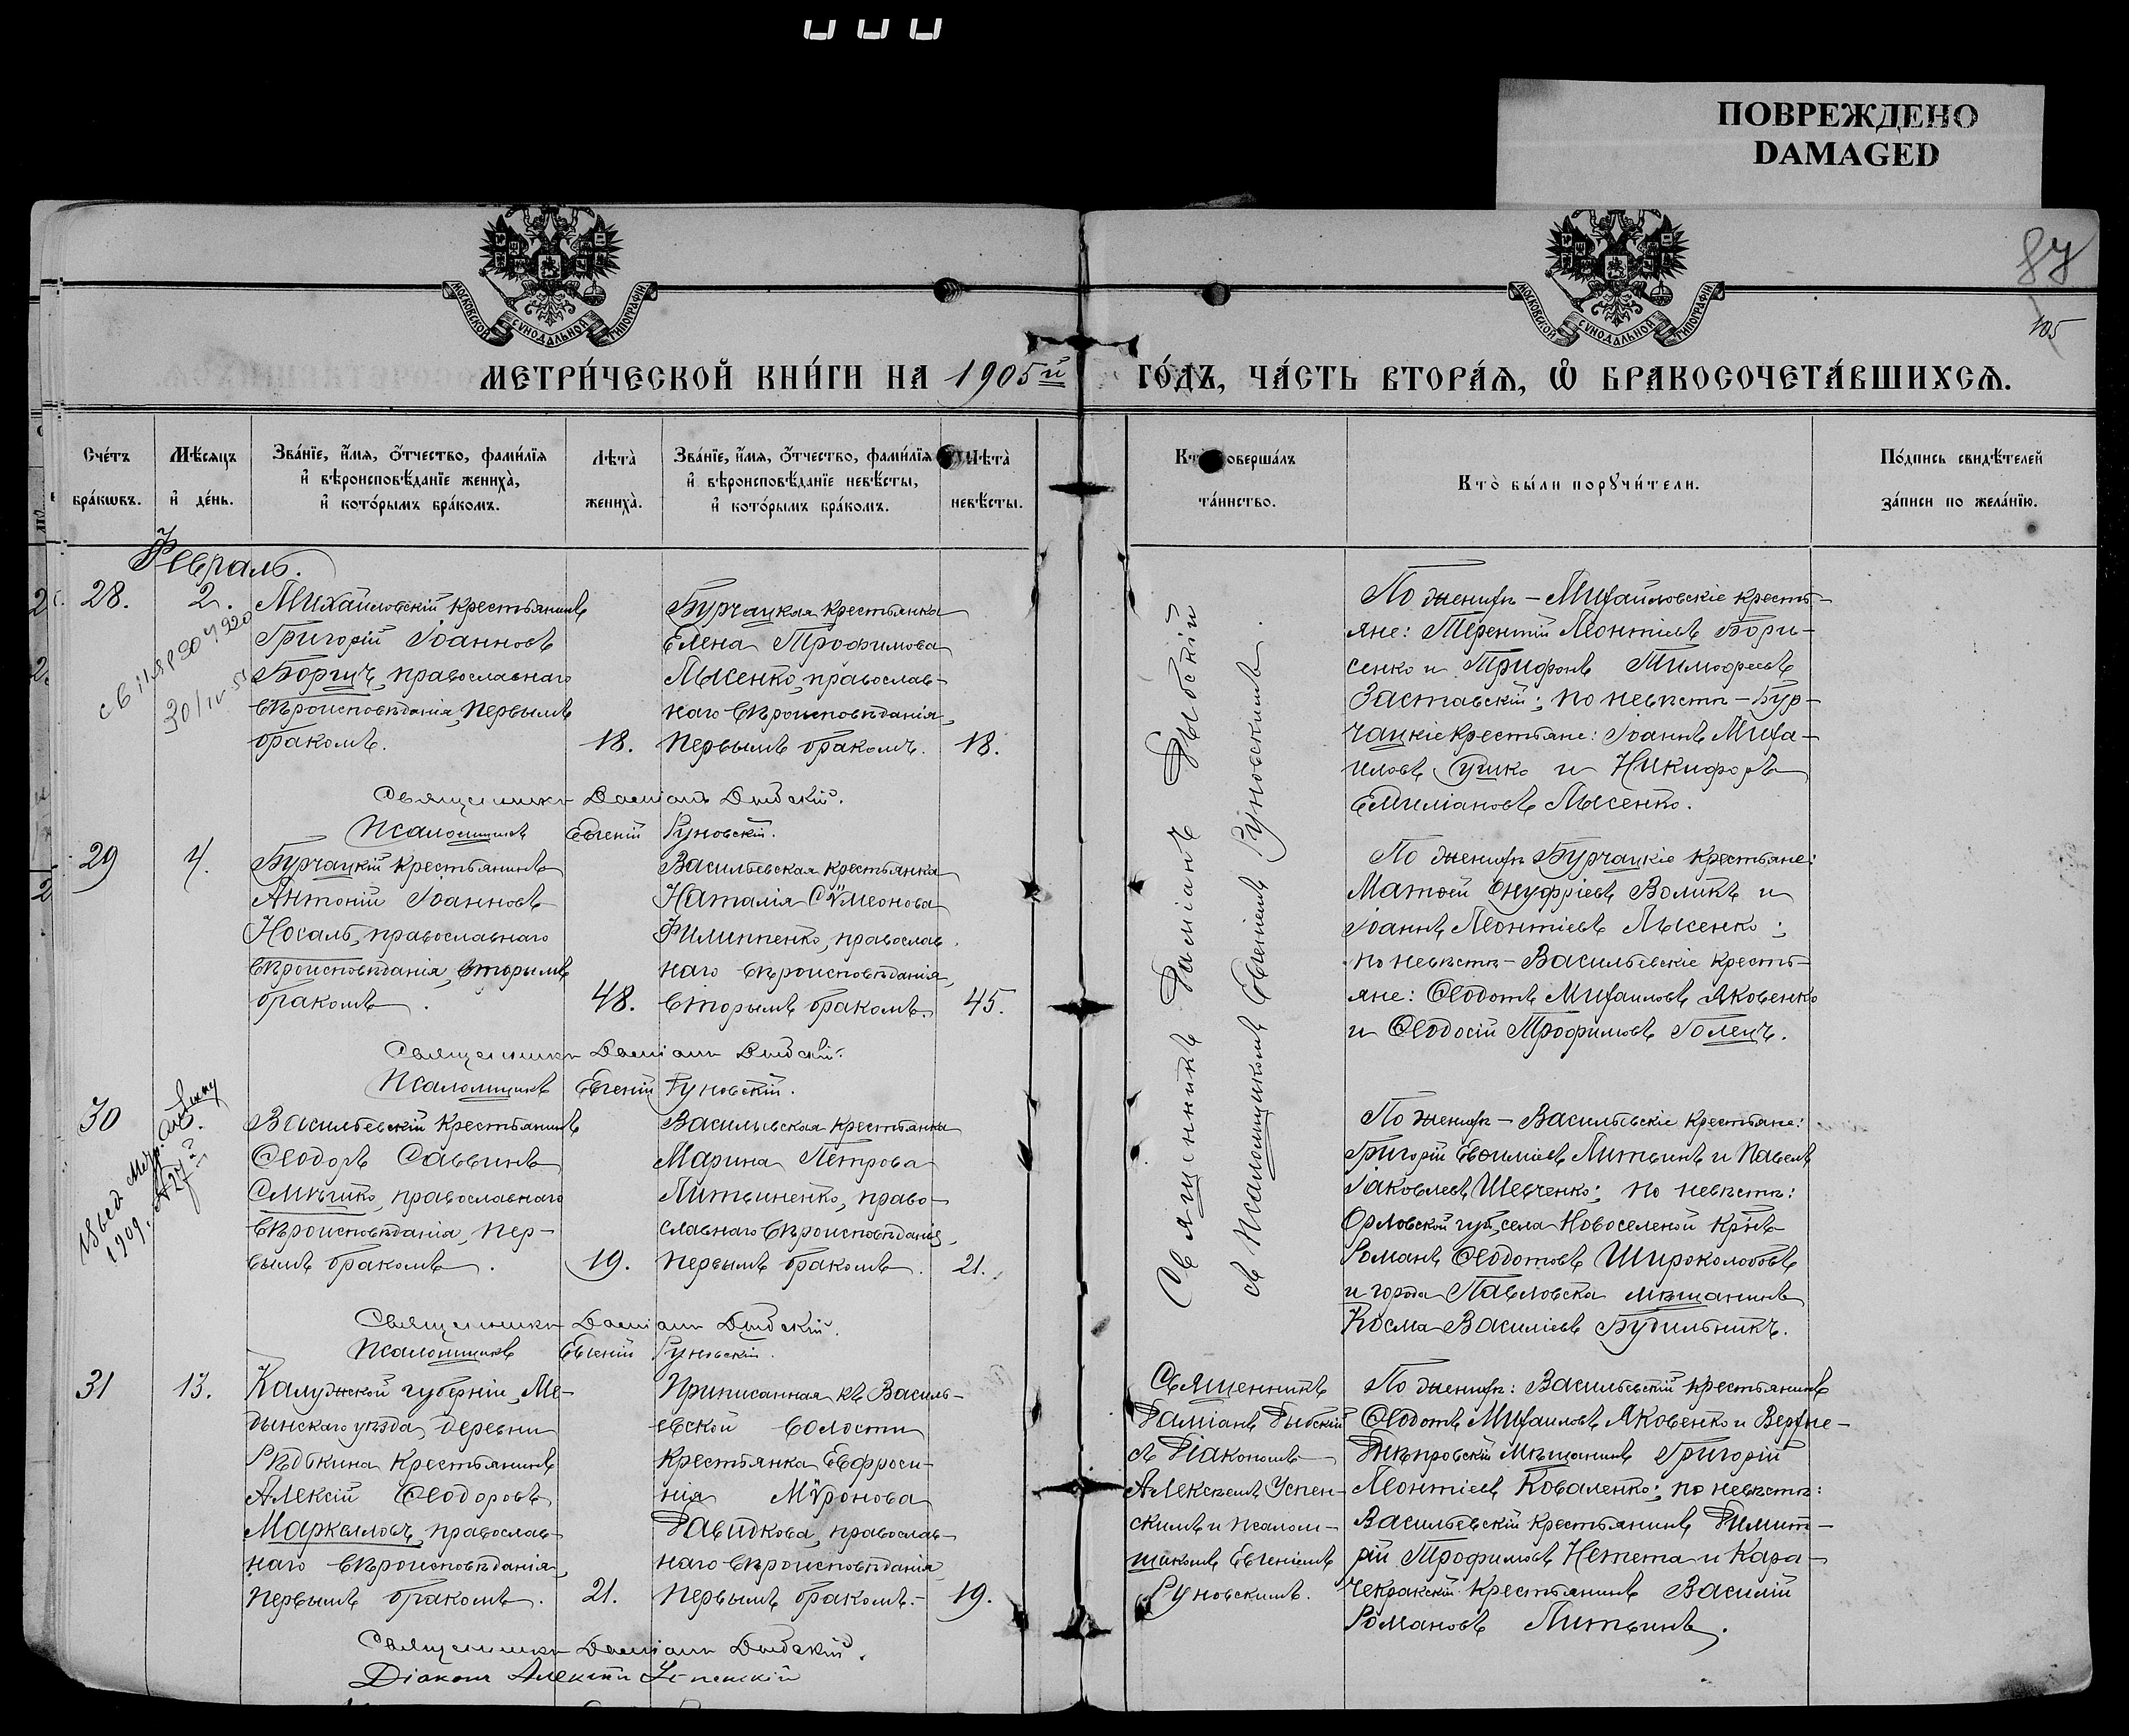 ПОВРЕЖДЕНО
DAMAGED
МОСКОВСКОЙ СѴНОДАЛЬНОЙ ТИПОГРАФІИ
МОСКОВСКОЙ СѴНОДАЛЬНОЙ ТИПОГРАФІИ
87
105
МЕТРИ́ЧЕСКОЙ КНИ́ГИ НА 1905й
ГО́ДЪ, ЧА́СТЬ ВТОРА́Ѧ, Ѽ БРАКОСОЧЕТА́ВШИХСѦ.
Сче́тъ
бра́кѡвъ.
Мѣ́сяцъ
и҆ де́нь.
Зва́нїе, и҆́мя, о҆́тчество, фами́лїя
и҆ вѣроисповѣ́данїе жениха̀,
и҆ кото́рымъ бра́комъ.
Лѣта̀
жениха̀.
Зва́нїе, и҆́мя, о҆́тчество, фами́лїя
и҆ вѣроисповѣ́данїе невѣ́сты,
и҆ кото́рымъ бра́комъ.
Лѣта̀
невѣ́сты.
Кто̀ соверша́лъ
та́инство.
Кто̀ бы́ли порꙋчи́тели.
По́дпись свидѣ́телей
за́писи по жела́нїю.
Февраль.
28.
2.
Михайловскій крестьянинъ
Григорій Іоанновъ
Боргич, православнаго
вѣроисповѣданія, первымъ
бракомъ.
18.
Бурчацкая крестьянка
Елена Трофимова
Лысенко, православ-
наго вѣроисповѣданія,
первымъ бракомъ.
18.
По женихѣ - Михайловскіе кресть-
яне: Терентій Леонтіевъ Бори-
сенко и Трифонъ Тимофеевъ
Заставскій; по невѣстѣ - Бур-
чацкіе крестьяне: Іоаннъ Миха-
иловъ Гушко и Никифоръ
Емиліановъ Лысенко.
Священникъ Даміанъ Дыбскій.
Псаломщикъ Евгеній Руновскій.
29
4.
Бурчацкій крестьянинъ
Антоній Іоанновъ
Носаль, православнаго
вѣроисповѣданія, вторымъ
бракомъ.
48.
Васильевская крестьянка
Наталія Сѵмеонова
Филиппенко, православ-
наго вѣроисповѣданія,
вторымъ бракомъ.
45.
По женихѣ Бурчацкіе крестьяне:
Матѳей Онуфріевъ Воликъ и
Іоаннъ Леонтіевъ Лысенко;
по невѣстѣ - Васильевскіе кресть-
яне: Ѳеодотъ Михаиловъ Яковенко
и Ѳеодосій Трофимовъ Голецъ.
Священникъ Даміанъ Дыбскій.
Псаломщикъ Евгеній Руновскій.
30
Васильевскій крестьянинъ
Ѳеодоръ Саввинъ
Смѣшко, православнаго
вѣроисповѣданія, пер-
вымъ бракомъ.
19.
Васильевская крестьянка
Марина Петрова
Литвиненко, право-
славнаго вѣроисповѣданія,
первымъ бракомъ.
21.
По женихѣ - Васильевскіе крестьяне:
Григорій Евѳиміевъ Литвинъ и Павелъ
Іаковлевъ Шевченко; по невѣстѣ:
Орловской губ, села Новоселеной кр-нъ
Романъ Ѳеодотовъ Широколобовъ
и города Павловска мѣщанинъ
Косма Василіевъ Будильникъ.
Священникъ Даміанъ Дыбскій
съ псаломщикомъ Евгеніемъ Руновскимъ.
Священникъ Даміанъ Дыбскій.
Псаломщикъ Евгеній Руновскій.
31
13.
Калужской губерніи, Ме-
дынскаго уѣзда, деревни
Рѣдькина крестьянинъ
Алексій Ѳеодоровъ
Маркеловъ, православ-
наго вѣроисповѣданія,
первымъ бракомъ.
21.
Приписанная къ Василь-
евской волости
крестьянка Евфроси-
нія Мѵронова
Давидкова, православ-
наго вѣроисповѣданія,
первымъ бракомъ.
19.
Священникъ
Даміанъ Дыбскій
съ Діакономъ
Алексѣемъ Успен-
скимъ и псалом-
щикомъ Евгеніемъ
Руновскимъ.
По женихѣ: Васильевскій крестьянинъ
Ѳеодотъ Михаиловъ Яковенко и Верхне-
Днѣпровскій мѣщанинъ Григорій
Леонтіевъ Коваленко; по невѣстѣ:
Васильевскій крестьянинъ Димит-
рій Трофимовъ Нетета и Кара-
чекракскій крестьянинъ Василій
Романовъ Литвинъ.
Священникъ Даміанъ Дыбскій.
Діаконъ Алексій Успенскій